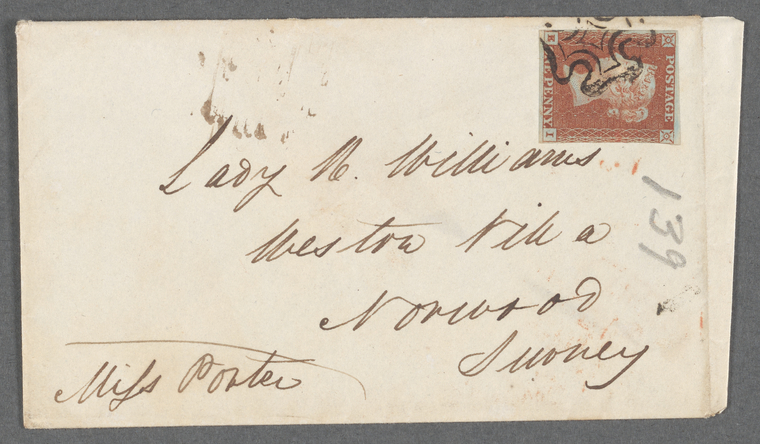 POSTAGE
PENNY
E I
Lady N. Williams
Weston Villa
Norwood
Surrey
Miss Porter
139